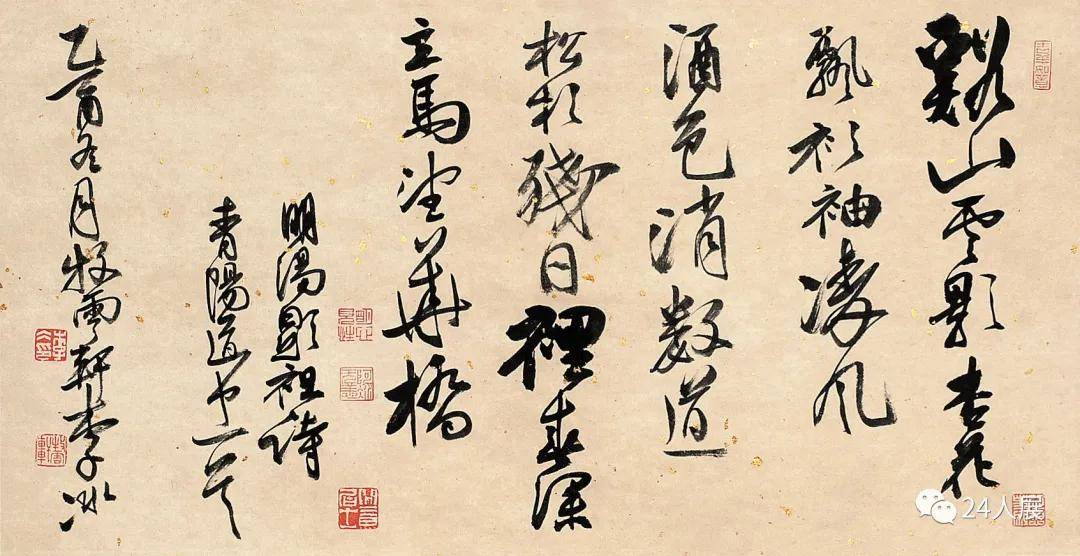 谿山雲影杏花
飄衫袖凌風
酒色消數道
松杉殘日裡春深
立馬望華橋
明湯顯祖詩
青陽道中一首
乙酉冬月牧雲軒李冰
24人展